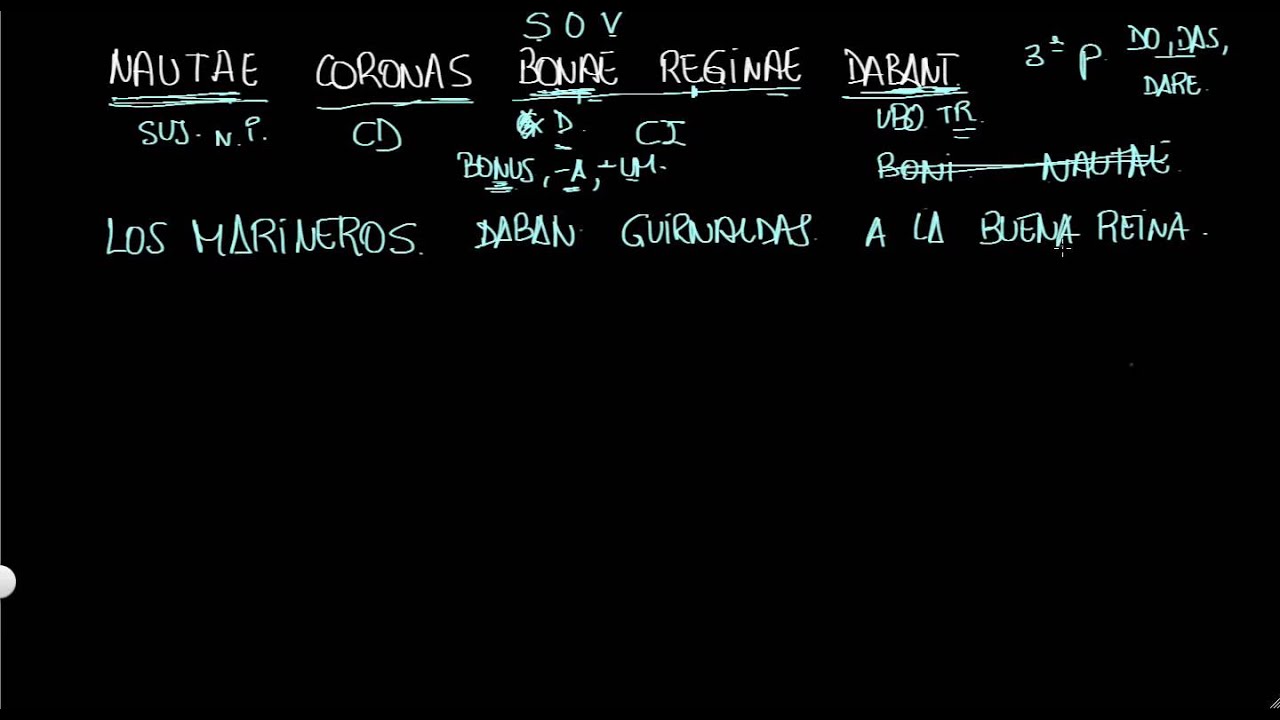 S O V
NAUTAE CORONAS BONAE REGINAE DABANT.
3ª P. DO, DAS,
DARE.
SUJ. N.P. CD D. CI VBO. TR.
BONUS, -A, -UM. BONI NAUTAE.
LOS MARINEROS. DABAN GUIRNALDAS. A LA BUENA REINA.